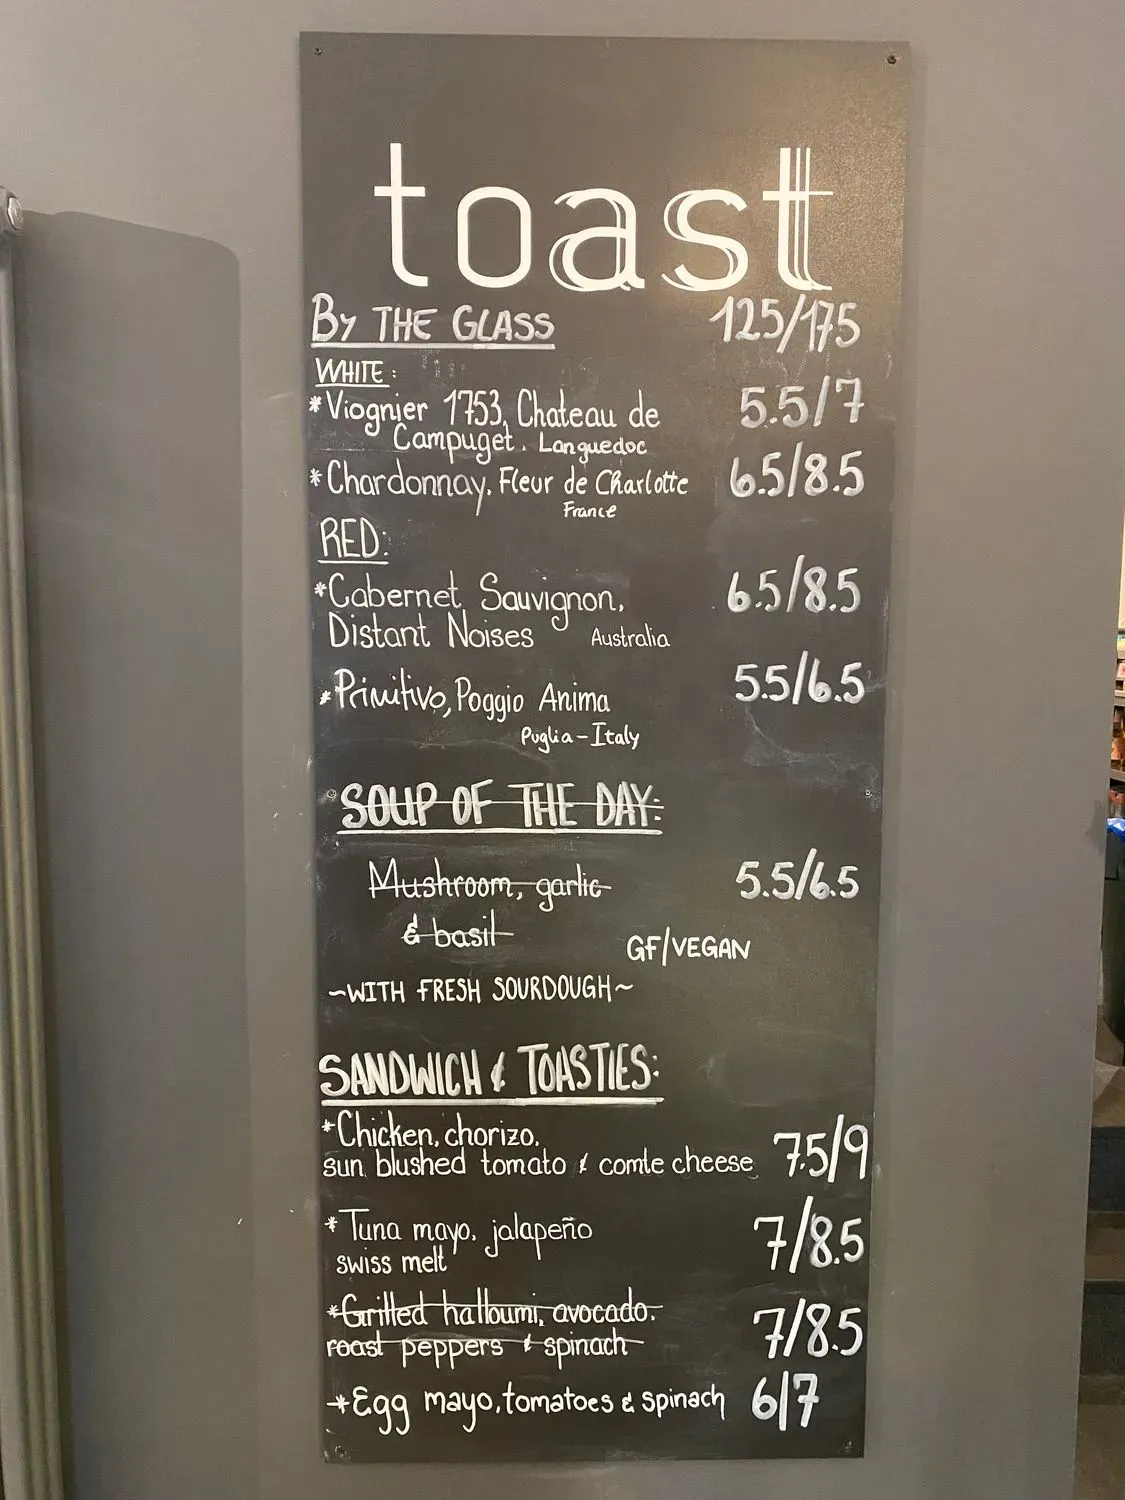 toast
By THE GLASS 125/175
WHITE:
*Viognier 1753, Chateau de 5.5/7
Campuget. Languedoc
*Chardonnay, Fleur de Charlotte 6.5/8.5
France
RED:
*Cabernet Sauvignon, 6.5/8.5
Distant Noises Australia
*Primitivo, Poggio Anima 5.5/6.5
Puglia-Italy
SOUP OF THE DAY:
Mushroom, garlic 5.5/6.5
& basil
GF/VEGAN
~WITH FRESH SOURDOUGH~
SANDWICH & TOASTIES:
*Chicken, chorizo,
sun blushed tomato & comte cheese 7.5/9
*Tuna mayo, jalapeño 7/8.5
swiss melt
*Grilled halloumi, avocado. 7/8.5
roast peppers & spinach
*Egg mayo, tomatoes & spinach 6/7